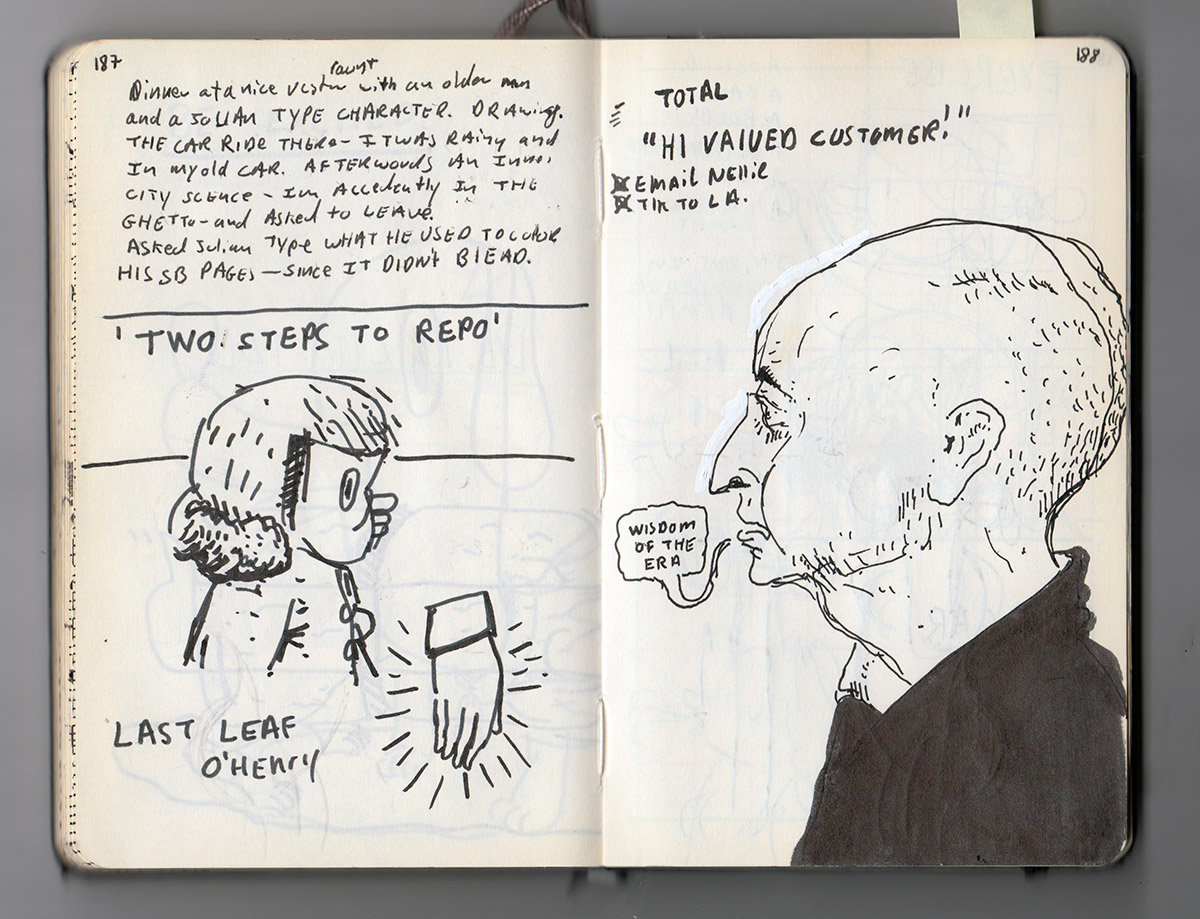 187
Dinner at a nice with an older man
and a JULIAN TYPE CHARACTER. DRAWING.
THE CAR RIDE THERE - IT WAS RAINY and
In my old CAR. AFTERWORDS AN INNER
CITY SCIENCE - Im Accedently In THE
GHETTO - and Asked to LEAVE.
Asked Julian Type WHAT HE USED TO COLOR
HIS SB PAGES - SINCE IT DIDN'T BLEAD.
'TWO STEPS TO REPO'
LAST LEAF
O'HENRY
188
TOTAL
"HI VALUED CUSTOMER!"
EMAIL NELLIE
TIK TO LA.
WISDOM
OF THE
ERA